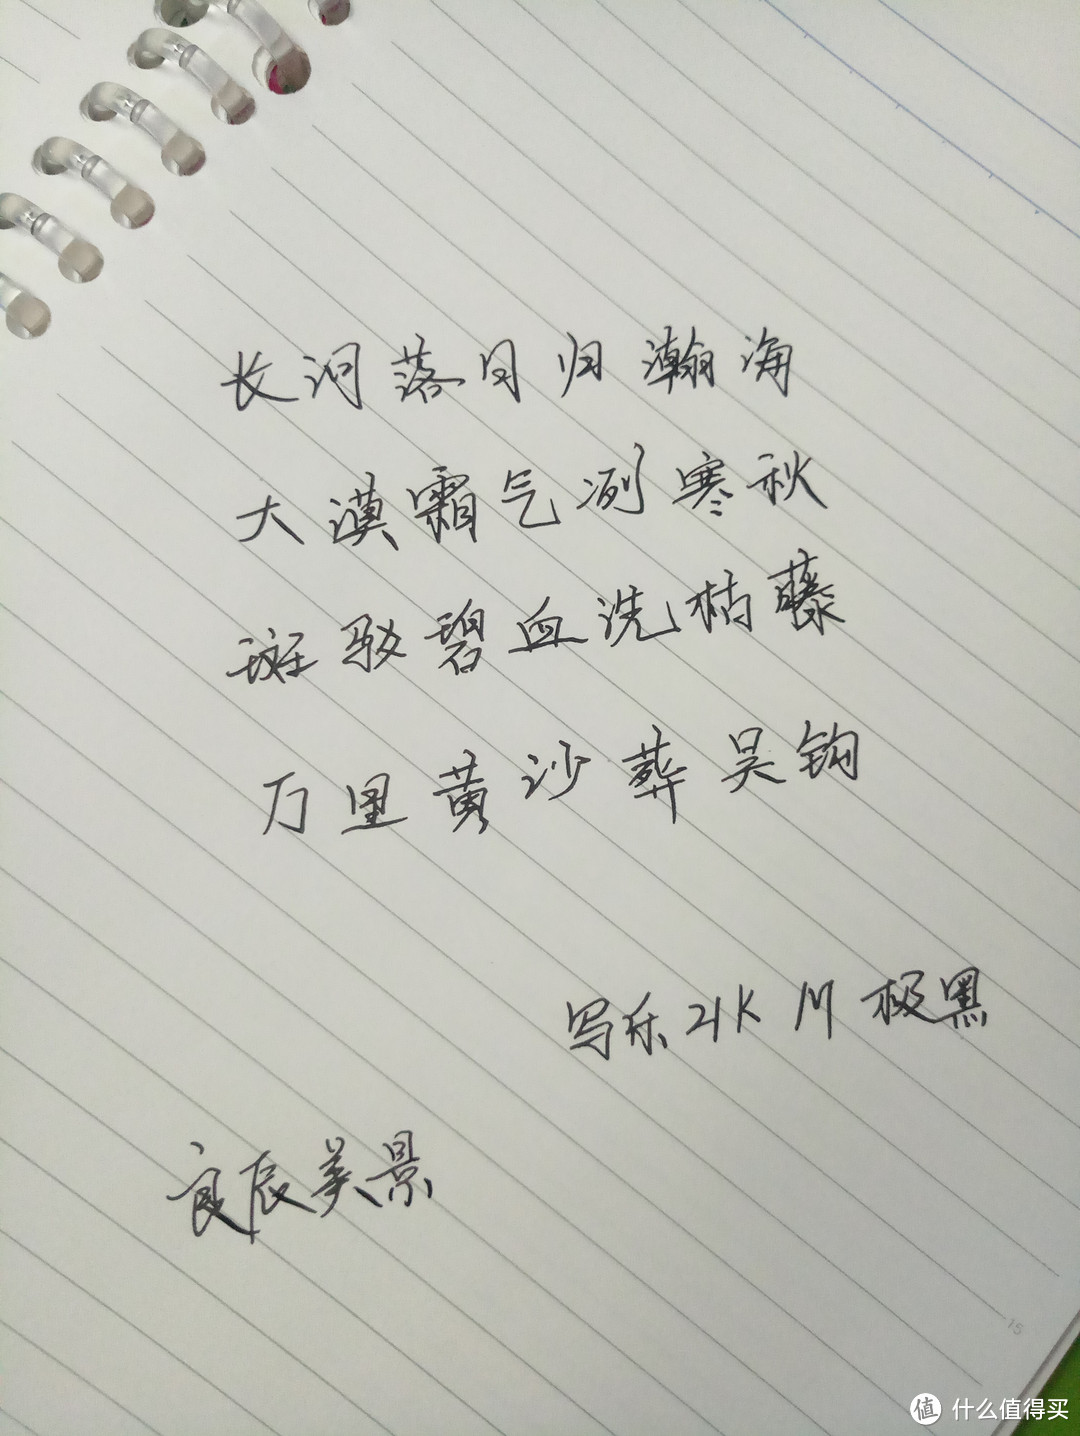 长河落日归瀚海
大漠霜气冽寒秋
斑驳碧血洗枯藤
万里黄沙葬吴钩
写乐21K M 极黑
良辰美景
15
值 什么值得买